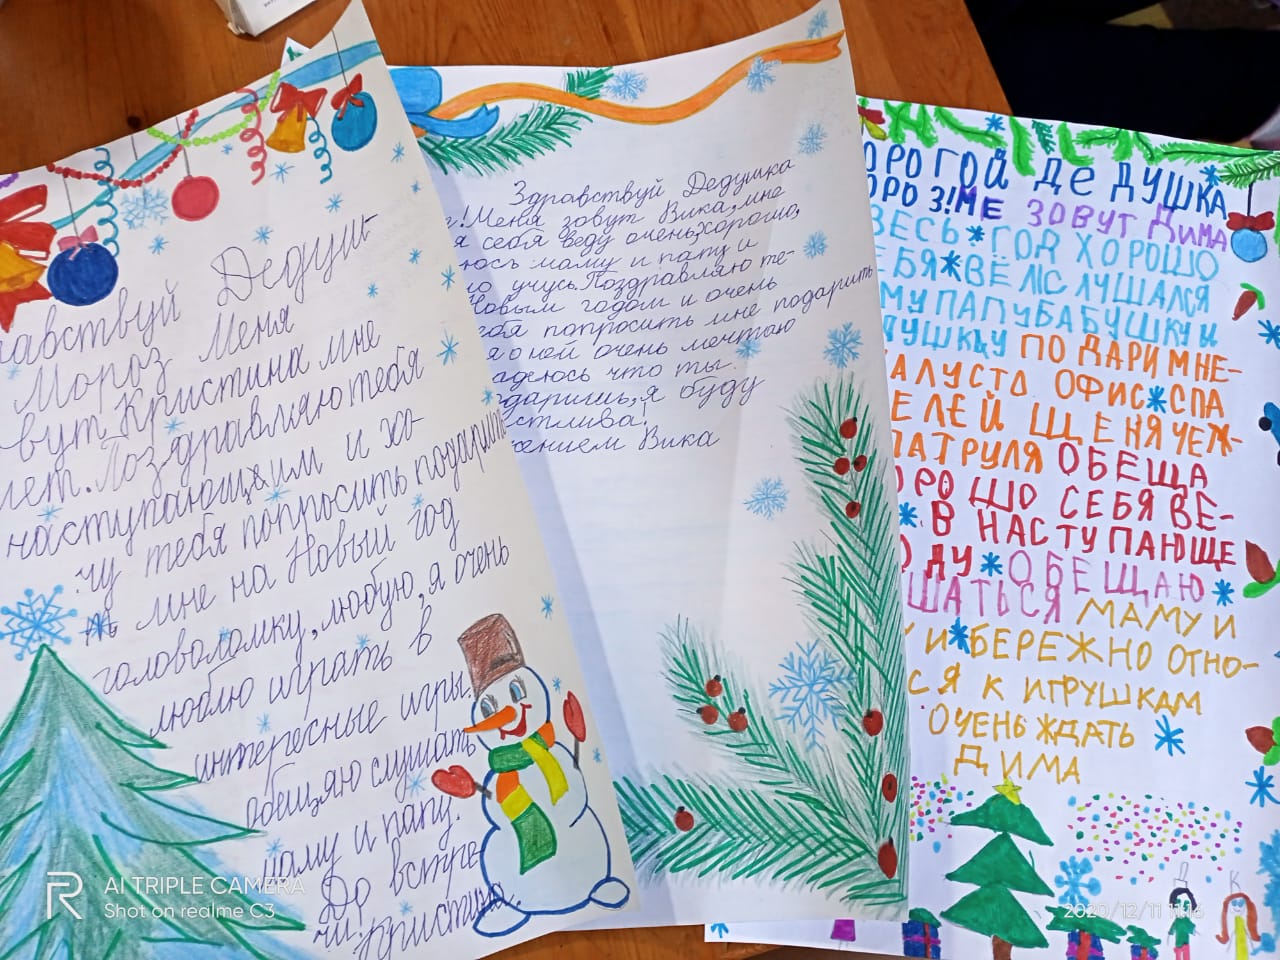 равствуй Дедуш-
Мороз Меня
вут Кристина мне
лет. Поздравляю тебя
наступающим и хо-
чу тебя попросить подарить
мне на Новый год
головоломку, любую, я очень
люблю играть в
интересные игры.
обещаю слушать
маму и папу.
До встре
чи!
Кристина
Здравствуй Дедушка
!Меня зовут Вика, мне
я себя веду очень хорошо,
юсь маму и папу и
но учусь. Поздравляю те-
Новым годом и очень
ебя попросить мне подарить
я о ней очень мечтаю
адеюсь что ты.
одаришь, я буду
стлива!
жением Вика
ОРОГОЙ ДЕДУШКА
ОРОЗ!МЕ ЗОВУТ ДИМА
ВЕСЬ ГОД ХОРОШО
ЕБЯ ВЁЛ СЛУШАЛСЯ
МУ ПАПУ БАБУШКУ И
ДУШКУ ПОДАРИ МНЕ-
АЛУСТА ОФИС СПА
ЕЛЕЙ ЩЕНЯЧЕЖ-
ПАТРУЛЯ ОБЕЩА
ОРОШО СЕБЯ ВЕ-
В НАСТУПАЮЩЕ
ОДУ ОБЕЩАЮ
ШАТЬСЯ МАМУ И
У И БЕРЕЖНО ОТНО-
СЯ К ИГРУШКАМ
ОЧЕНЬ ЖДАТЬ
ДИМА
Д К
AI TRIPLE CAMERA
Shot on realme C3
2020/12/11 11:16